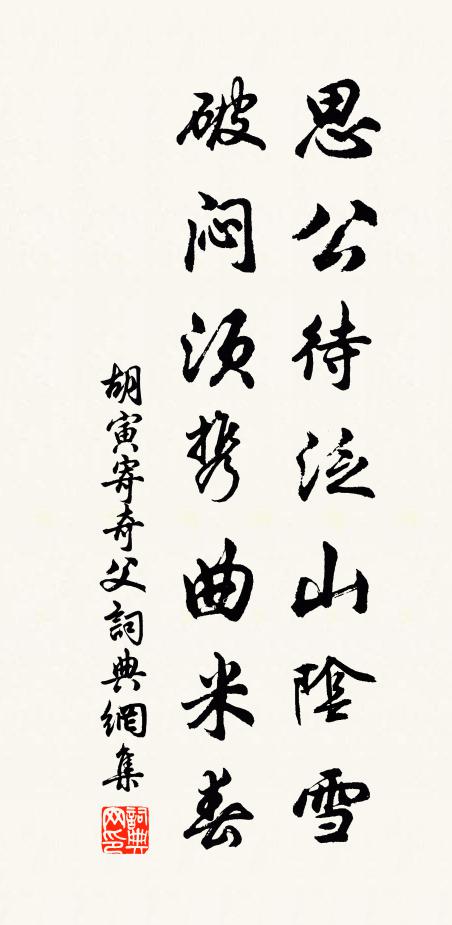 思公待泛山陰雪
破闷须携曲米春
胡寅寄奇父詞典網集
詞典网印